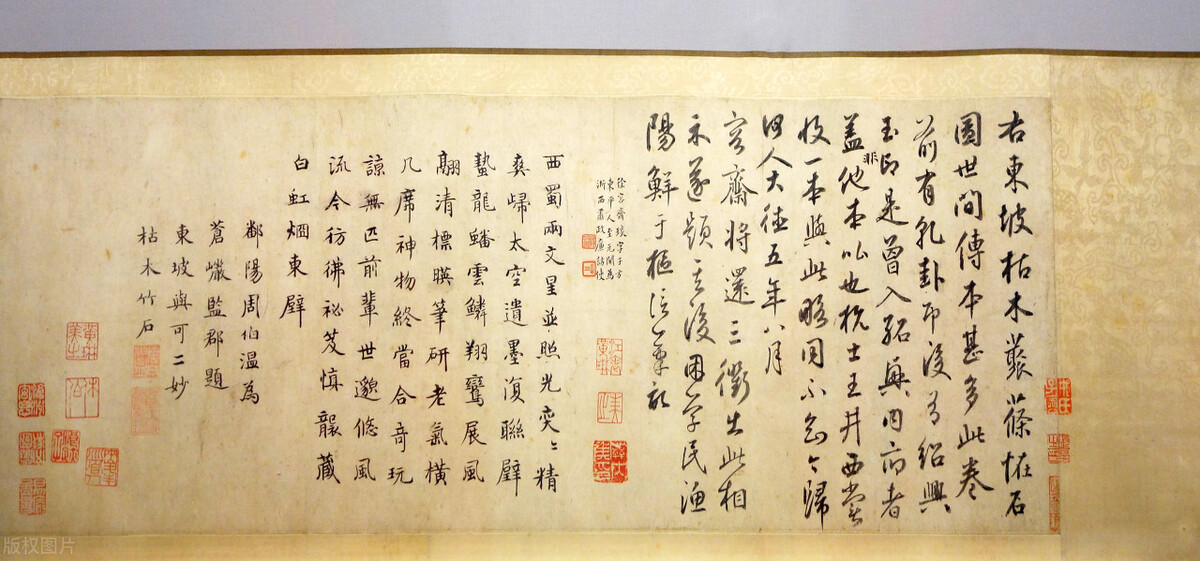 右東坡枯木叢篠怪石
圖世間傳本甚多此卷
前有乳卦印後有紹興
玉印是曾入紹興内府者
盖非他本比也杭士王井西嘗
收一本與此略同不知今歸
何人大德五年八月
容齋將還三衢出此相
示遂題其後困學民漁
陽鮮于樞信筆記
徐容齋琰字子方
東平人至元間為
浙西肅政廉訪使
西蜀兩文星並照光奕々精
爽歸太空遺墨復聯璧
蟄龍蟠雲鱗翔鸞展風
翮清標暎筆研老氣橫
几席神物終當合奇玩
諒無匹前輩世邈悠風
流今彷彿祕笈慎襲藏
白虹烟東壁
鄱陽周伯温為
蒼巖監郡題
東坡與可二妙
枯木竹石
版权图片